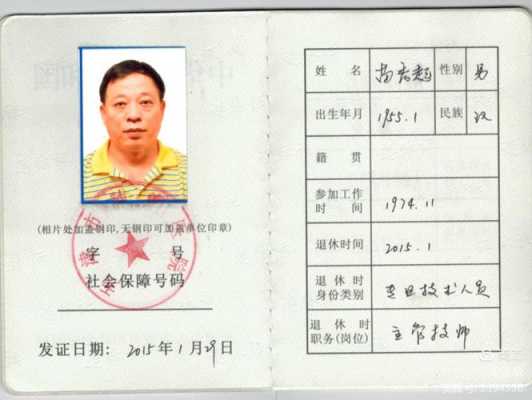 (相片处加盖钢印,无钢印可加盖单位印章)
字 号
社会保障号码
发证日期: 2015年1月29日
姓 名 性别 男
出生年月 1955.1 民族 汉
籍 贯
参加工作
时 间 1974.11
退休时间 2015.1
退 休 时
身份类别 专业技术人员
退 休 时
职务(岗位) 主管技师